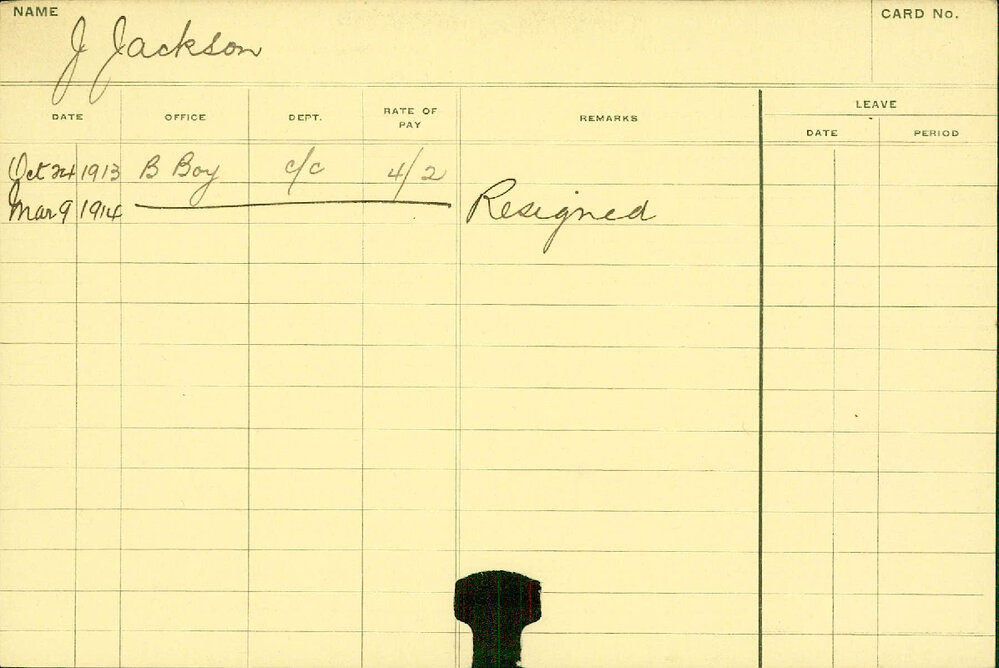 NAME
CARD No.
J Jackson
DATE OFFICE DEPT. RATE OF PAY REMARKS LEAVE
DATE PERIOD
Oct 24 1913 B Boy c/c 4/2
Mar 9 1914 Resigned